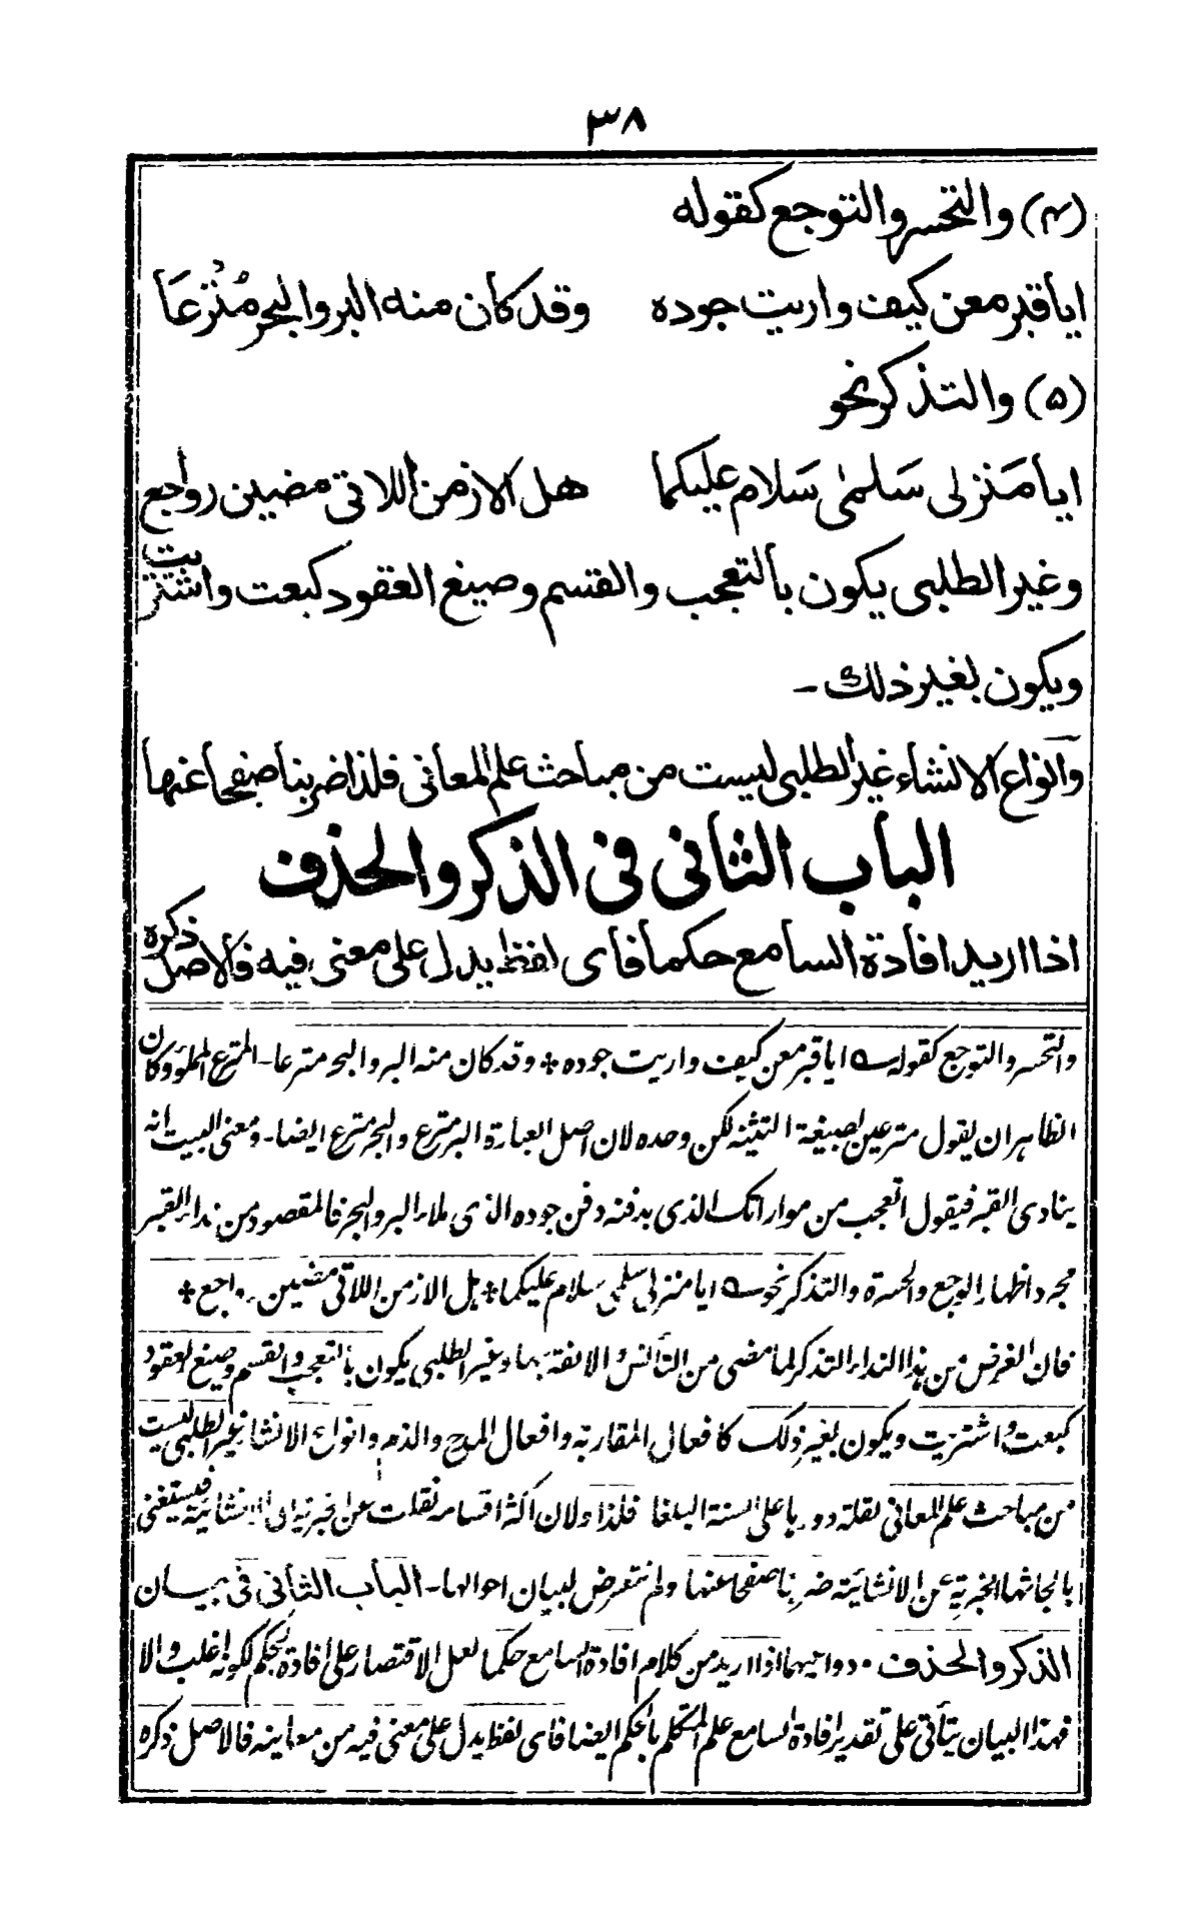 ٣٨
(٤) والتحسر والتوجع كقوله
ايا قبر معن كيف واريت جوده وقد كان منه البر والبحر مُتْرَعَا
(۵) والتذكر نحو
ايا مَنزلى سَلمٰى سَلام عليكما هل الازمن اللاتى مضين رواجع
وغير الطلبى يكون بالتعجب والقسم وصيغ العقود كبعت واشتريت
ويكون بغير ذلك -
وانواع الانشاء غير الطلبى ليست من مباحث علم المعانى فلذا ضربنا صفحا عنها
الباب الثانى فى الذكر والحذف
اذا اريد افادة السامع حكما فاى لفظ يدل على معنى فيه فالاصل ذكره
والتحسر والتوجع كقوله ايا قبر معن كيف واريت جوده + وقد كان منه البر والبحر مترعا - المترع المملوء وكان
الظاهر ان يقول مترعين بصيغة التثنية لكن وحده لان اصل العبارة البر مترع والبحر مترع ايضا - ومعنى البيت انه
ينادى القبر فيقول اتعجب من مواراتك الذى بدفنه دفن جوده الذى ملأ البر والبحر فالمقصود من نداء القبر
مجرد اظهار الوجع والحسرة والتذكر نحو ايا منزلى سلمى سلام عليكما + هل الازمن اللاتى مضين رواجع +
فان الغرض من هذا النداء التذكر لما مضى من التأنس والالفة بهما وغير الطلبى يكون بالتعجب والقسم وصيغ العقود
كبعت واشتريت ويكون بغير ذلك كافعال المقاربة وافعال المدح والذم وانواع الانشاء غير الطلبى ليست
من مباحث علم المعانى لقلة دورها على السنة البلغاء فلذا ولان اكثر اقسامه نقلت عن الخبرية الى الانشائية فيستغنى
بابحاثها الخبرية عن الانشائية ضربنا صفحا عنها ولم نتعرض لبيان احوالها - الباب الثانى فى بيان
الذكر والحذف ودواعيهما اذا اريد من كلام افادة السامع حكما لعل الاقتصار على افادة الحكم لكونه اغلب والا
فهذا البيان يتأتى على تقدير افادة السامع علم المتكلم بالحكم ايضا فاى لفظ يدل على معنى فيه من معانيه فالاصل ذكره